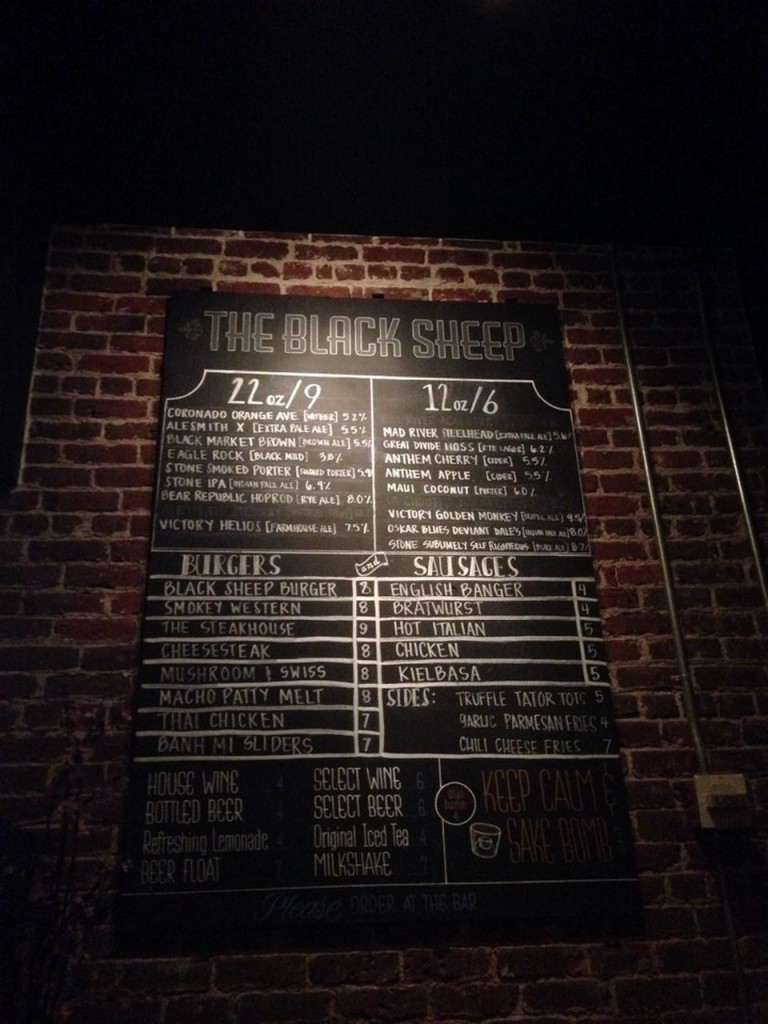 THE BLACK SHEEP
22 oz/9
CORONADO ORANGE AVE [WITBIER] 5.2%
ALESMITH X [EXTRA PALE ALE] 5.5%
BLACK MARKET BROWN [BROWN ALE] 5.5%
EAGLE ROCK [BLACK MILD] 3.8%
STONE SMOKED PORTER [SMOKED PORTER] 5.9%
STONE IPA [INDIAN PALE ALE] 6.9%
BEAR REPUBLIC HOPROD [RYE ALE] 8.0%
VICTORY HELIOS [FARMHOUSE ALE] 7.5%
12 oz/6
MAD RIVER STEELHEAD [EXTRA PALE ALE] 5.6%
GREAT DIVIDE HOSS [RYE LAGER] 6.2%
ANTHEM CHERRY [CIDER] 5.5%
ANTHEM APPLE [CIDER] 5.5%
MAUI COCONUT [PORTER] 6.0%
VICTORY GOLDEN MONKEY [TRIPEL ALE] 9.5%
OSKAR BLUES DEVIANT DALE'S [INDIAN PALE ALE] 8.0%
STONE SUBLIMELY SELF RIGHTEOUS [BLACK ALE] 8.7%
BURGERS and SAUSAGES
BLACK SHEEP BURGER 8
SMOKEY WESTERN 8
THE STEAKHOUSE 9
CHEESESTEAK 8
MUSHROOM & SWISS 8
MACHO PATTY MELT 8
THAI CHICKEN 7
BANH MI SLIDERS 7
ENGLISH BANGER 4
BRATWURST 4
HOT ITALIAN 5
CHICKEN 5
KIELBASA 5
SIDES: TRUFFLE TATOR TOTS 5
GARLIC PARMESAN FRIES 4
CHILI CHEESE FRIES 7
HOUSE WINE 4
BOTTLED BEER 4
Refreshing Lemonade 4
BEER FLOAT 7
SELECT WINE 6
SELECT BEER 6
Original Iced Tea 4
MILKSHAKE 7
KEEP CALM &
SAKE BOMB
Please ORDER AT THE BAR